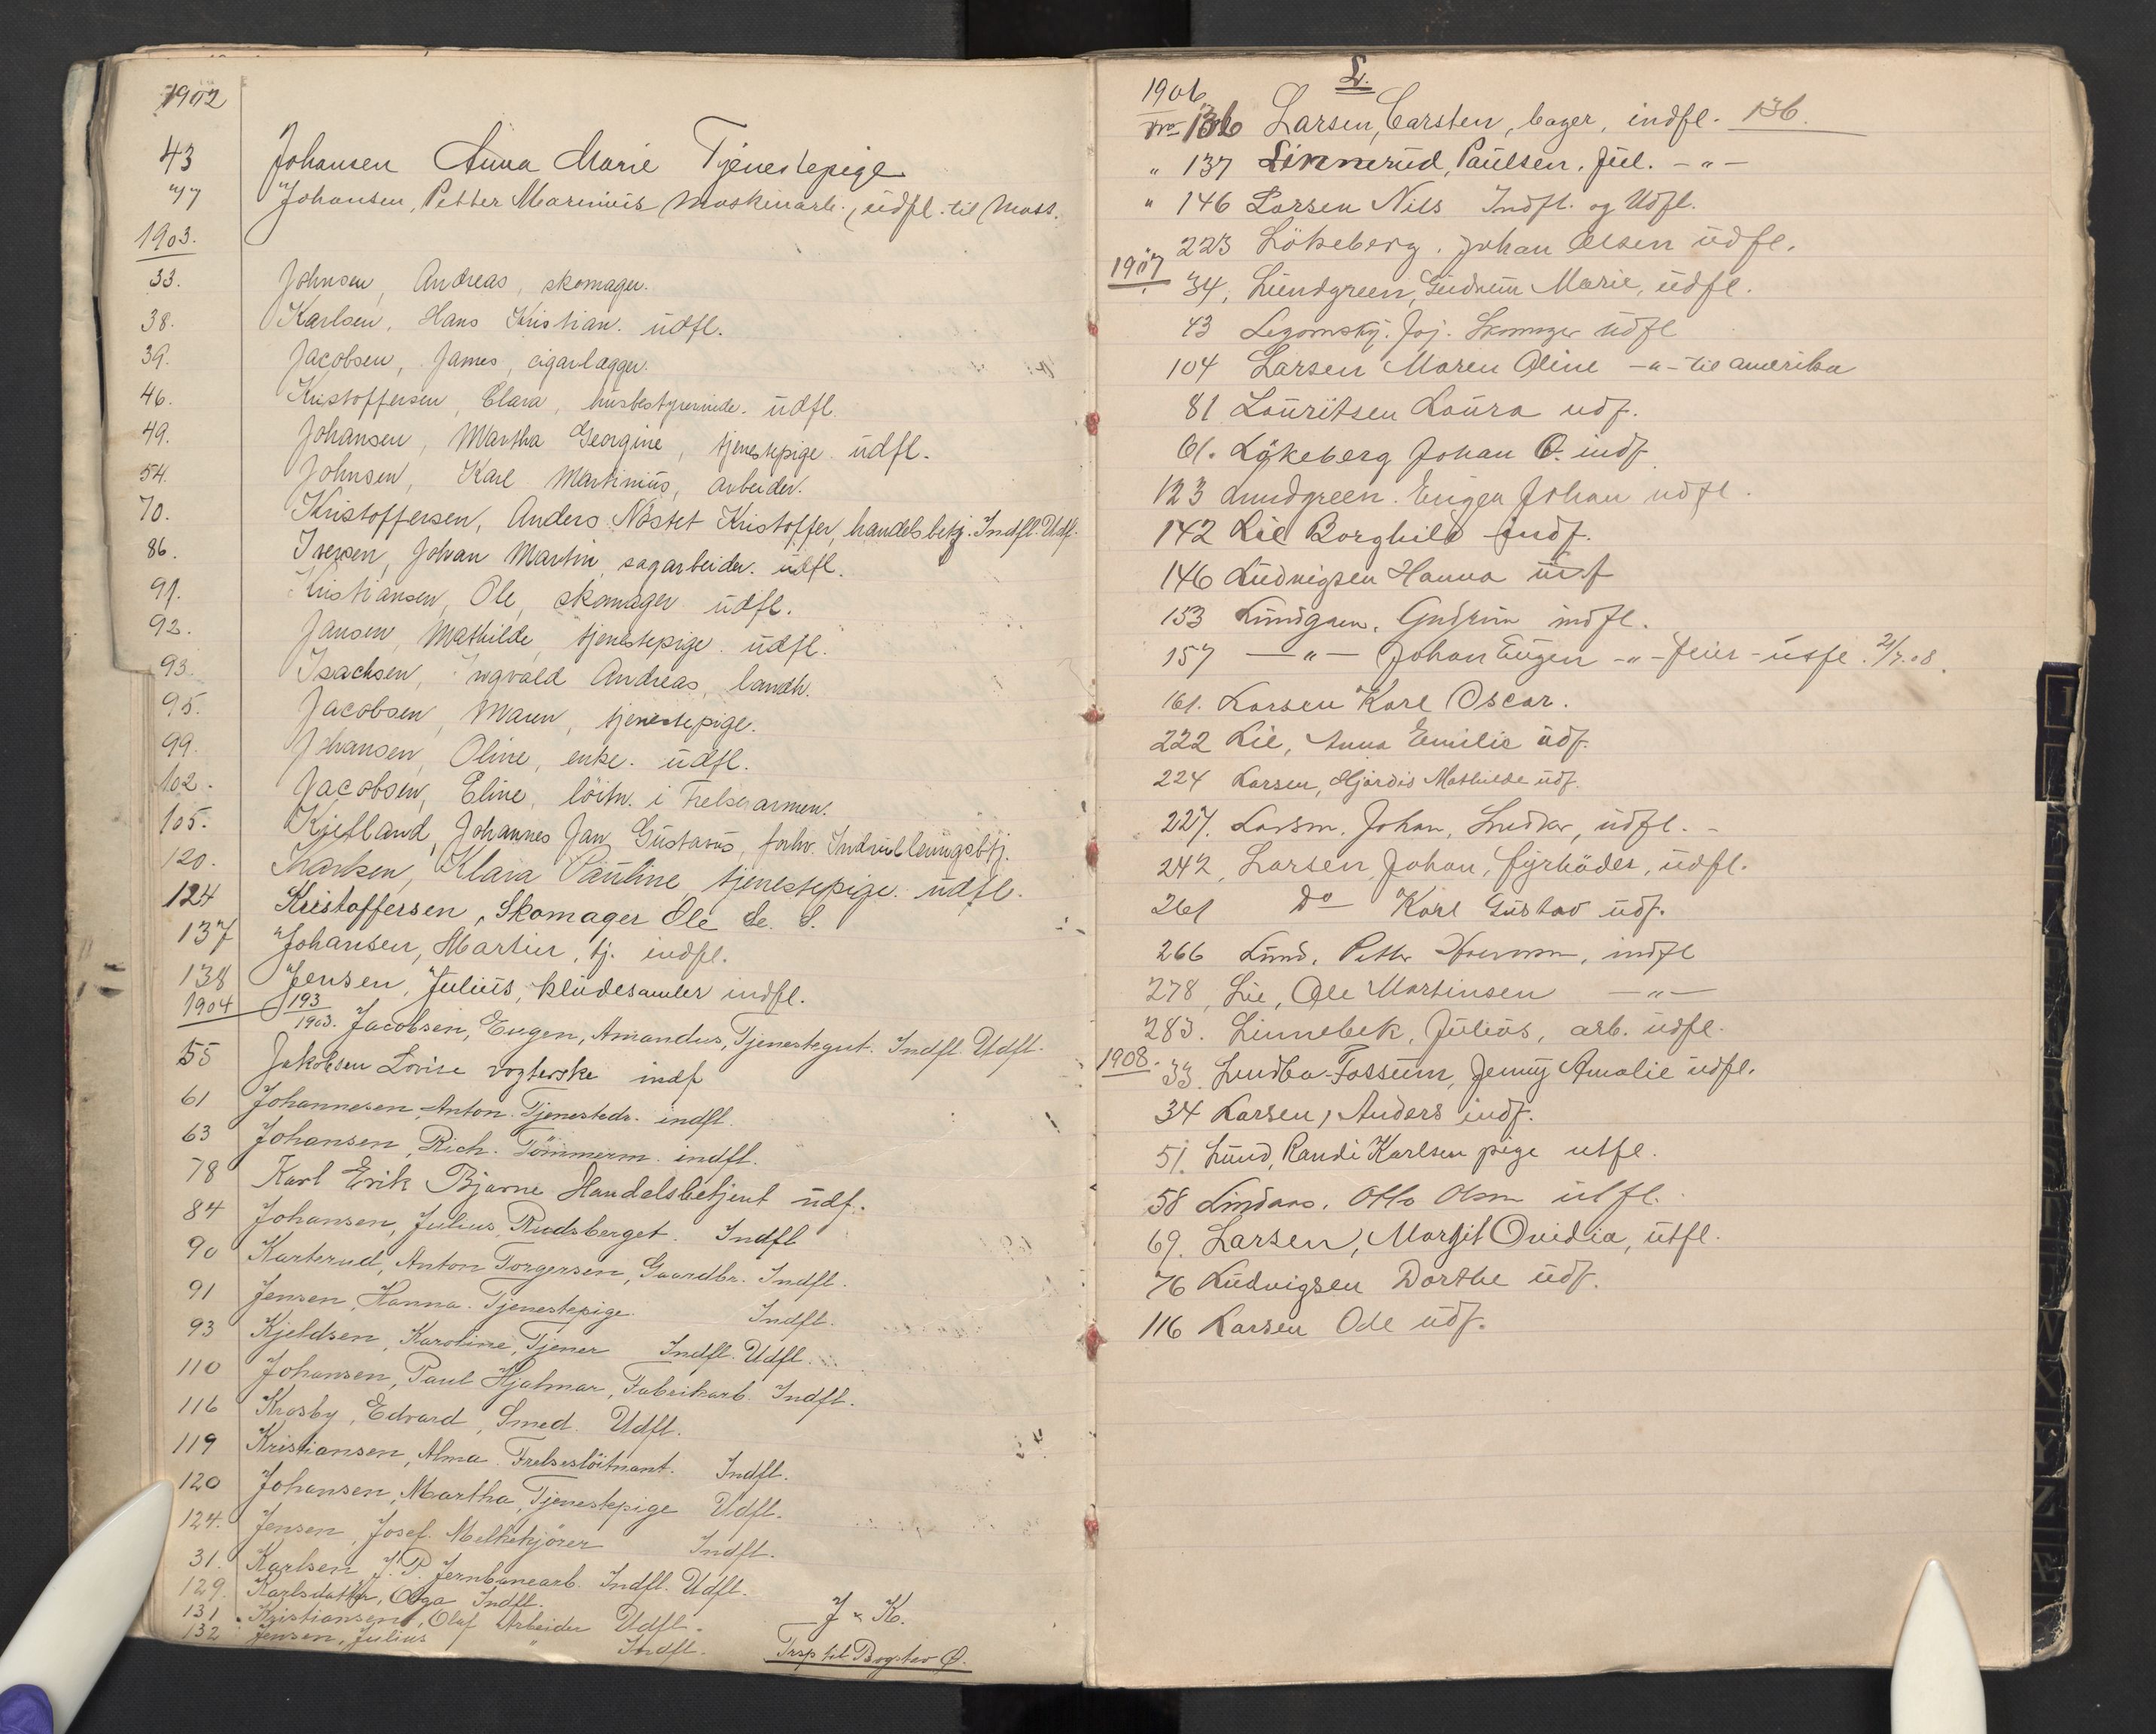 1902
43 Johansen Anna Marie Tjenestepige
47 Johansen, Petter Marinius Maskinarb., udfl. til Moss.
1903.
33. Johnsen, Andreas, skomager.
38. Karlsen, Hans Kristian. udfl.
39. Jacobsen, James, cigarlægger.
46. Kristoffersen, Clara, husbestyrerinde. udfl.
49. Johansen, Martha Georgine, tjenestepige. udfl.
54. Johnsen, Karl Martinius, arbeider.
70. Kristoffersen, Anders Nöstet Kristoffer, handelsbetj. Indfl. Udf.
86. Iversen, Johan Martin, sagarbeider. udfl.
91. Kristiansen, Ole, skomager udfl.
92. Jansen, Mathilde, tjenestepige. udfl.
93. Isachsen, Ingvald Andreas, landh.
95. Jacobsen, Maren, tjenestepige.
99. Johansen, Oline, enke. udfl.
102. Jacobsen, Eline, löitn. i Frelserarmen.
105. Kjelland, Johannes Jan Gustavus, forhv. Indrulleringsbtj.
120. Karlsen, Klara Pauline, tjenestepige. udfl.
124 Kristoffersen, Skomager Ole
137 Johansen, Martin, tj. indfl.
138 Jensen, Julius, kludesamler indfl.
1904 193/1903. Jacobsen, Eugen, Amandus, Tjenestegut. Indfl. Udfl.
55 Jakobsen Lovise vogterske indf
61 Johannesen, Anton. Tjenestedr. indfl.
63 Johansen, Rich. Tömmerm. indfl.
78 Karl Erik Bjarne Handelsbetjent udf.
84 Johansen, Julius, Rudsberget. Indfl
90 Karterud, Anton Torgersen, Gaardbr. Indfl.
91 Jensen, Hanna. Tjenestepige. Indfl.
93 Kjeldsen, Karoline, Tjener Indfl. Udfl.
110 Johansen, Paul Hjalmar, Fabrikarb. Indfl.
116 Krosby, Edvard, Smed. Udfl.
119 Kristiansen, Alma. Frelseslöitnant. Indfl.
120 Johansen, Martha, Tjenestepige Udfl.
124. Jensen, Josef. Melkekjörer Indfl.
31. Karlsen, J. P. Jernbanearb. Indfl. Udfl.
129. Karlsdatter, Olga Indfl.
131. Kristiansen, Olaf Arbeider Udfl.
132 Jensen, Julius " Indfl.
J & K.
Trsp til Bogstav Ø.
L.
1906
No 136 Larsen, Carsten, bager, indfl. 136.
" 137 Linnerud, Paulsen, Jul. - " -
" 146 Larsen Nils Indfl. og Udfl.
" 223 Lökeberg, Johan Olsen udfl.
1907
34, Lundgreen, Gudrun Marie, udfl.
43 Legomsky. Joj. Skomager udfl
104 Larsen Maren Oline - " - til amerika
81 Lauritsen Laura udf.
61. Lökeberg Johan O. indf
123 Lundgreen. Eugen Johan udfl.
142 Lie Borghild indf.
146 Ludvigsen Hanna udf
153 Lundgren, Gudrun indfl.
157 - " - Johan Eugen - " - feier - utfl. 21/7.08.
161. Larsen Karl Oscar.
222 Lie, Anna Emilie udf.
224 Larsen, Hjørdis Mathilde udf.
227. Larsen, Johan, Snedker, udfl. -
242, Larsen, Johan, fyrböder, udfl.
261 Do Karl Gustav udf.
266 Lund, Petter Herman, indfl
278, Lie, Ole Martinsen - " -
283. Linnebek, Julius, arb. udfl.
1908.
33. Lundbo-Fossum, Jenny Amalie udfl.
34 Larsen, Anders indf.
51. Lund, Randi Karlsen pige utfl.
58 Lindaas, Otto Olsen utfl.
69. Larsen, Margit Ovidia, utfl.
76 Ludvigsen Dorthe udf.
116 Larsen Ole udf.